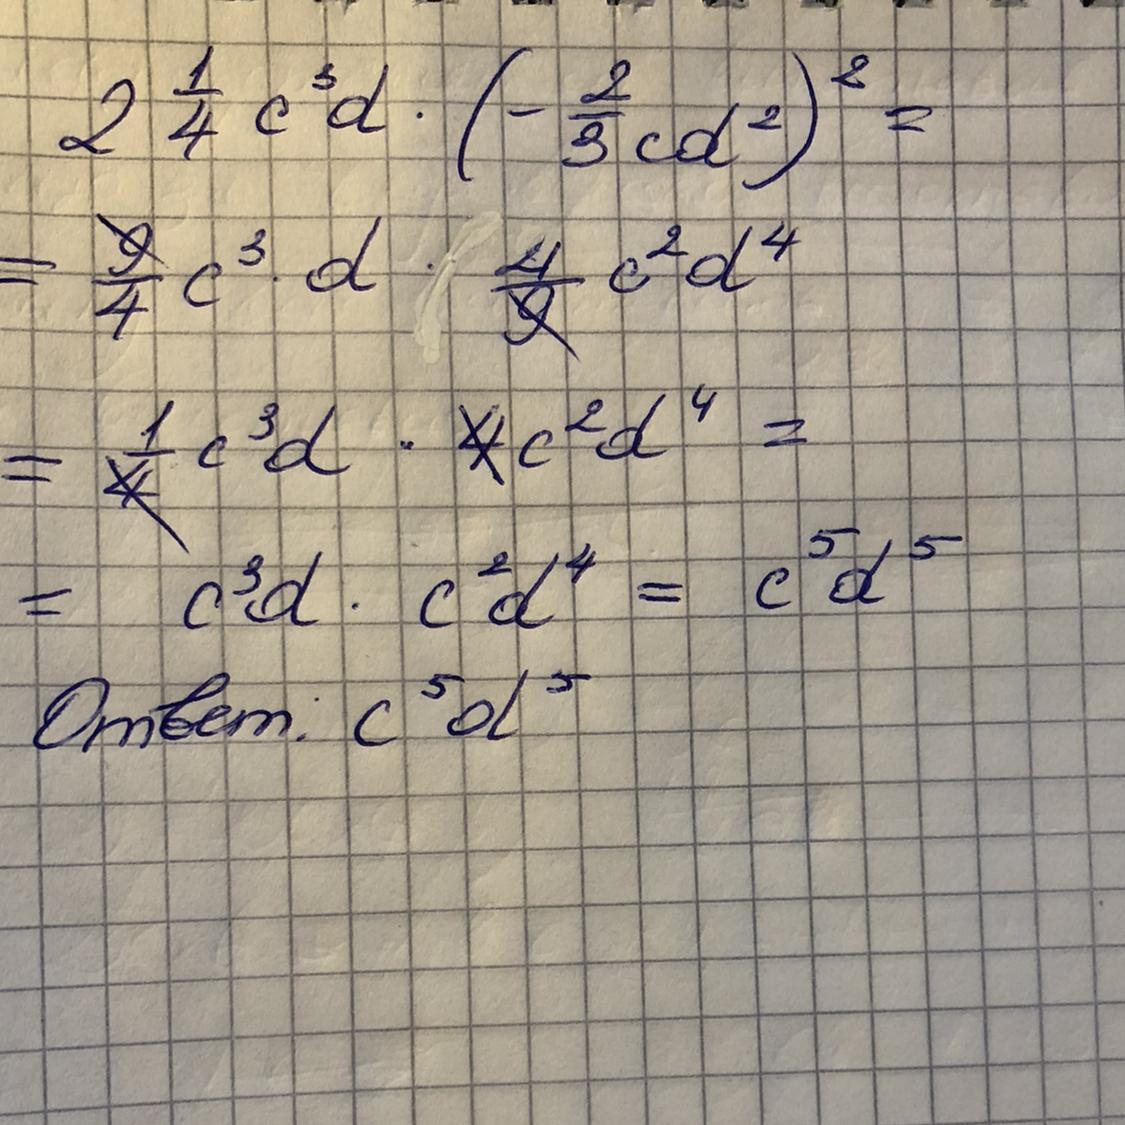 2 1/4 c³d · (- 2/3 cd²)² =
= 9/4 c³ · d · 4/9 c²d⁴
= 1/4 c³d · 4c²d⁴ =
= c³d · c²d⁴ = c⁵d⁵
Ответ: c⁵d⁵